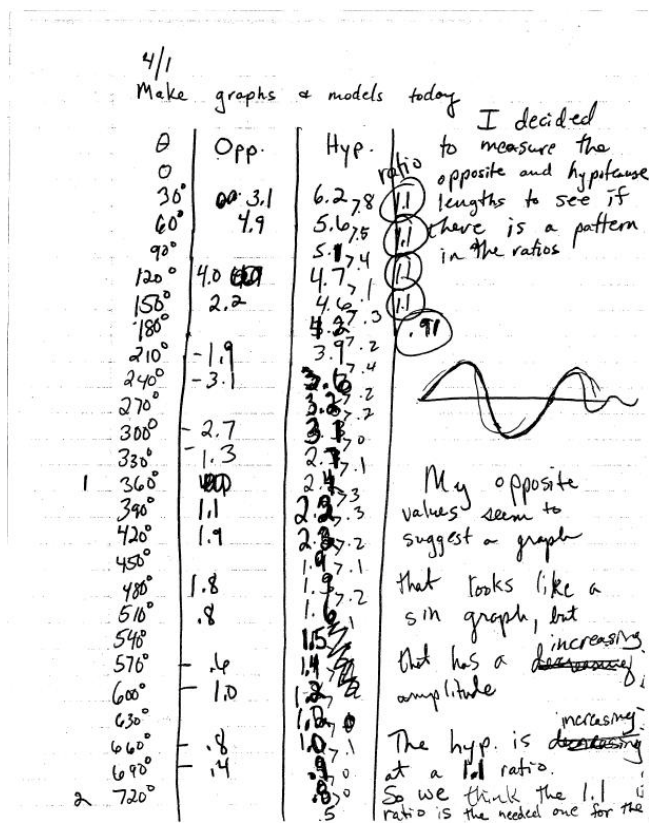 4/1
Make graphs & models today
θ Opp. Hyp. ratio
0
30° 3.1 6.2 >.8 1.1
60° 4.9 5.6 >.5 1.1
90° 5.1 >.4 1.1
120° 4.0 4.7 >.1 1.1
150° 2.2 4.6 >.3 .91
180° >.2
210° -1.9 3.9 >.4
240° -3.1 >.2
270° 3.2 >.2
300° -2.7 >0
330° -1.3 >.1
1 360° >.3
390° 1.1 >.3
420° 1.9 >.2
450° >.1
480° 1.8 >.2
510° .8 .1
540° 1.5
570° - .6 1.4
600° - 1.0
630° 0
660° - .8 1.0 >.1
690° - .4 .9 >0
2 720° .8 >0
.5
I decided
to measure the
opposite and hypotenuse
lengths to see if
there is a pattern
in the ratios
My opposite
values seem to
suggest a graph
that looks like a
sin graph, but
increasing
that has a decreasing
amplitude
increasing
The hyp. is decreasing
at a 1.1 ratio.
So we think the 1.1
ratio is the needed one for the